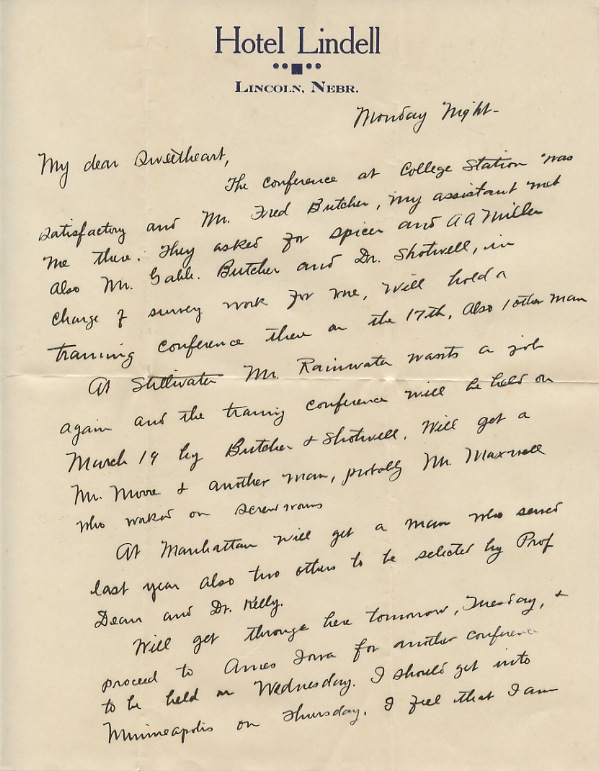 Hotel Lindell
LINCOLN, NEBR.
Monday Night-
My dear Sweetheart,
The conference at College Station was
satisfactory and Mr. Fred Butcher, my assistant met
me there. They asked for Spicer and AA Miller
Also Mr. Gable. Butcher and Dr. Shotwell, in
charge of survey work for me, will hold a
training conference there on the 17th. Also 1 other man
At Stillwater Mr. Rainwater wants a job
again and the traing conference will be held on
March 19 by Butcher & Shotwell. Will get a
Mr. Moore & another man, probally Mr. Maxwell
who worked on screw worms
At Manhattan will get a man who served
last year also two others to be selected by Prof
Dean and Dr. Kelly.
Will get through here tomorrow, Tuesday, &
proceed to Ames Iowa for another conference
to be held on Wednesday. I should get into
Minneapolis on Thursday. I feel that I am